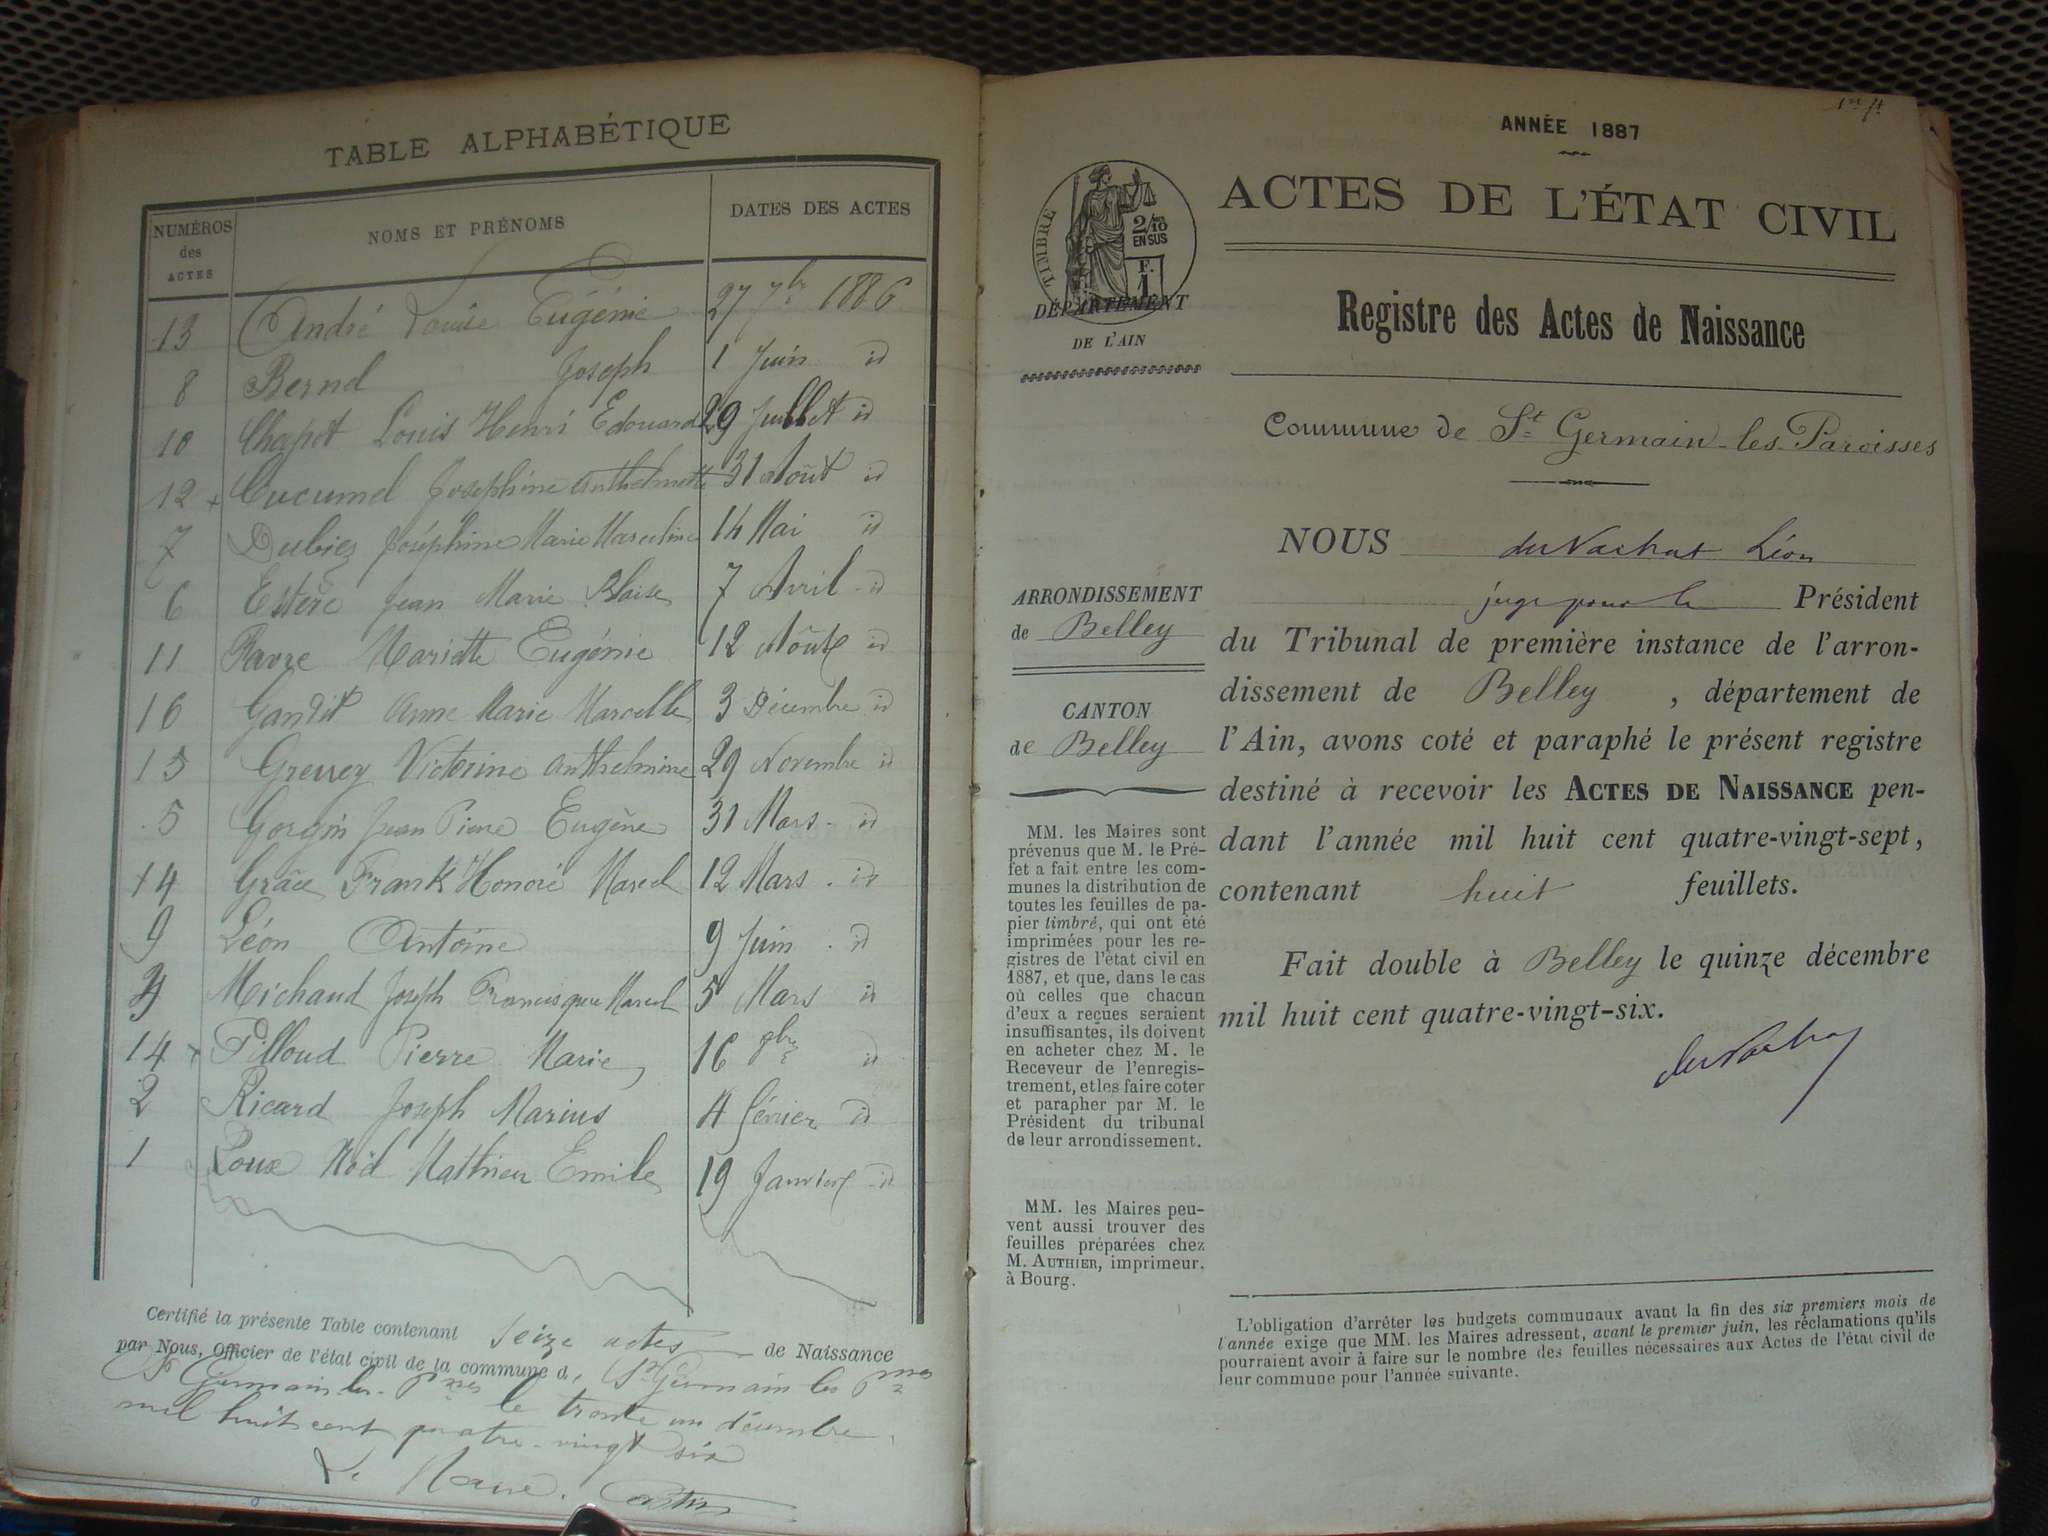 TABLE ALPHABÉTIQUE
NUMÉROS des ACTES NOMS ET PRÉNOMS DATES DES ACTES
13 André Louise Eugénie 27 7bre 1886
8 Bernd Joseph 1 Juin id
10 Chapot Louis Henri Edouard 29 Juillet id
12 + Cucumel Joséphine Anthelmette 31 Août id
7 Dubiez Joséphine Marie Marceline 14 Mai id
6 Estère Jean Marie Blaise 7 Avril id
11 Mariette Eugénie 12 Août id
16 Gandit Anne Marie Marcelle 3 Décembre id
15 Victorine Anthelmine 29 Novembre id
5 Gorgin Jean Pierre Eugène 31 Mars id
14 Grâce Frank Honoré Marcel 12 Mars id
9 Léon Antoine 9 Juin id
Michaud Joseph Francisque Marcel 5 Mars id
14 + Pilloud Pierre Marie 16 9bre id
2 Ricard Joseph Marius 4 février id
1 Roux Noël Mathieu Emile 19 Janvier id
Certifié la présente Table contenant seize actes de Naissance
par Nous, Officier de l'état civil de la commune d St Germain les
St Germain les le trente un décembre
mil huit cent quatre-vingt six
Le Maire.
1er ft
ANNÉE 1887
ACTES DE L'ÉTAT CIVIL
TIMBRE
2/10 EN SUS
F. 1
DÉPARTEMENT
DE L'AIN
Registre des Actes de Naissance
Commune de St Germain-les-Paroisses
ARRONDISSEMENT
de Belley
CANTON
de Belley
MM. les Maires sont
prévenus que M. le Pré-
fet a fait entre les com-
munes la distribution de
toutes les feuilles de pa-
pier timbré, qui ont été
imprimées pour les re-
gistres de l'état civil en
1887, et que, dans le cas
où celles que chacun
d'eux a reçues seraient
insuffisantes, ils doivent
en acheter chez M. le
Receveur de l'enregis-
trement, et les faire coter
et parapher par M. le
Président du tribunal
de leur arrondissement.
MM. les Maires peu-
vent aussi trouver des
feuilles préparées chez
M. AUTHIER, imprimeur,
à Bourg.
NOUS du Vachat Léon
juge pour le Président
du Tribunal de première instance de l'arron-
dissement de Belley , département de
l'Ain, avons coté et paraphé le présent registre
destiné à recevoir les ACTES DE NAISSANCE pen-
dant l'année mil huit cent quatre-vingt-sept,
contenant huit feuillets.
Fait double à Belley le quinze décembre
mil huit cent quatre-vingt-six.
du Vachat
L'obligation d'arrêter les budgets communaux avant la fin des six premiers mois de
l'année exige que MM. les Maires adressent, avant le premier juin, les réclamations qu'ils
pourraient avoir à faire sur le nombre des feuilles nécessaires aux Actes de l'état civil de
leur commune pour l'année suivante.